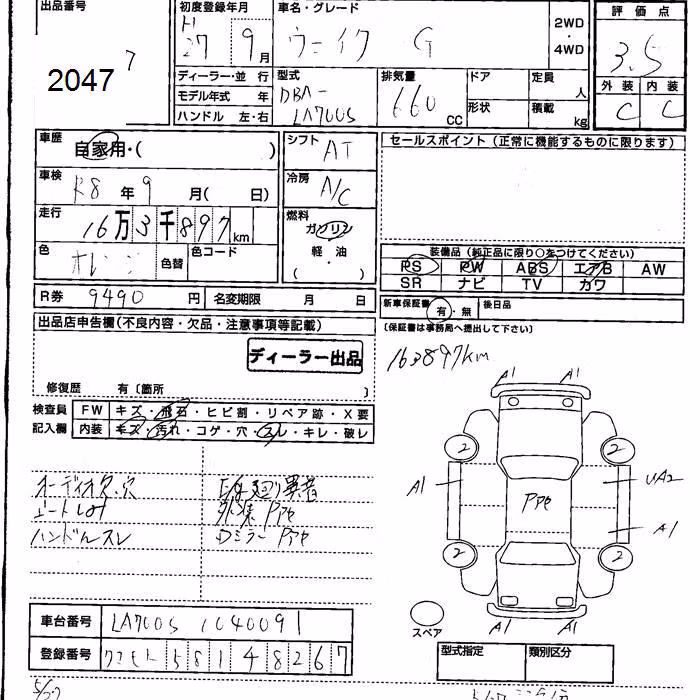 出品番号
7
2047
初度登録年月
H
27 9月
車名・グレード
ウェイク G
2WD
・
4WD
評価点
3.5
外装 内装
C C
ディーラー・並行
モデル年式 年
ハンドル 左・右
型式
DBA-
LA700S
排気量
660
CC
ドア
形状
定員
人
積載
kg
車歴
自家用・( )
車検
R8 年 9 月( 日)
走行
16万3千897km
色
オレンジ
色替
色コード
シフト
AT
冷房
A/C
燃料
ガソリン
軽・油
( )
セールスポイント(正常に機能するものに限ります)
装備品(純正品に限り○をつけてください)
PS PW ABS エアB AW
SR ナビ TV カワ
R券 9490 円
名変期限 月 日
新車保証書 有・無
後日品
(保証書は事務局へ提出して下さい)
出品店申告欄(不良内容・欠品・注意事項等記載)
ディーラー出品
修復歴 有〔箇所 〕
163897km
検査員
記入欄
FW キズ・飛石・ヒビ割・リペア跡・X要
内装 キズ・汚れ・コゲ・穴・スレ・キレ・破レ
オーディオ欠.穴
シートしみ
ハンドルスレ
E/g廻り異音
外装Pアセ
DミラーPアセ
A1 A1
2 2
A1
UA2
Pアセ
A1
2 2
A1 A1
スペア
車台番号 LA700S 1040091
登録番号 クマモト 581 4 8267
型式指定
類別区分